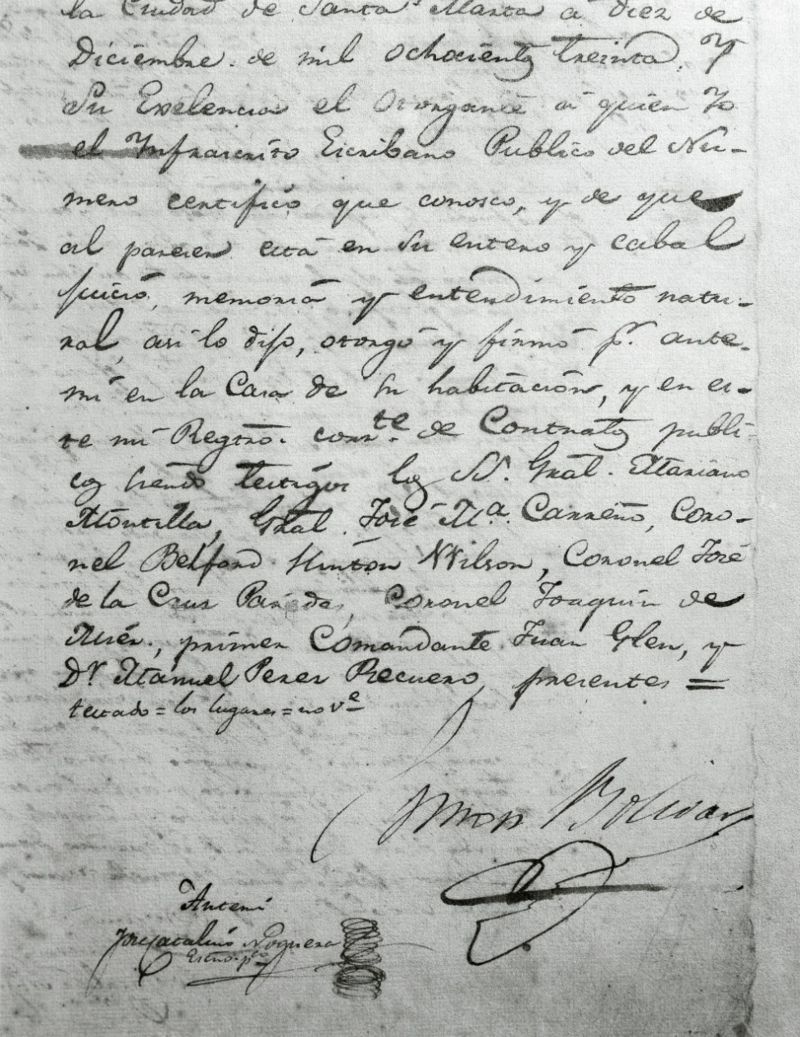 la Ciudad de Santa Marta a diez de
Diciembre de mil ochocientos treinta. Y
Su Exelencia el Otorgante á quien Yo
el Infrascrito Escribano Publico del Nu-
mero certifico que conosco, y de que
al parecer está en su entero y cabal
juicio, memoria y entendimiento natu-
ral, asi lo dijo, otorgó y firmó pr. ante-
mi en la Casa de su habitación, y en es-
te mi Registro corrte. de Contratos publi-
cos siendo testigos los SS. Gral. Mariano
Montilla, Gral. José Ma. Carreño, Coro-
nel Belford Hinton Wilson, Coronel José
de la Cruz Paredes, Coronel Joaquin de
Mier, primer Comandante Juan Glen, y
Dr. Manuel Perez Recuero, presentes =
testado = los lugares = no ve
Simon Bolivar
Antemi
José Catalino Noguera
Escno. pco.